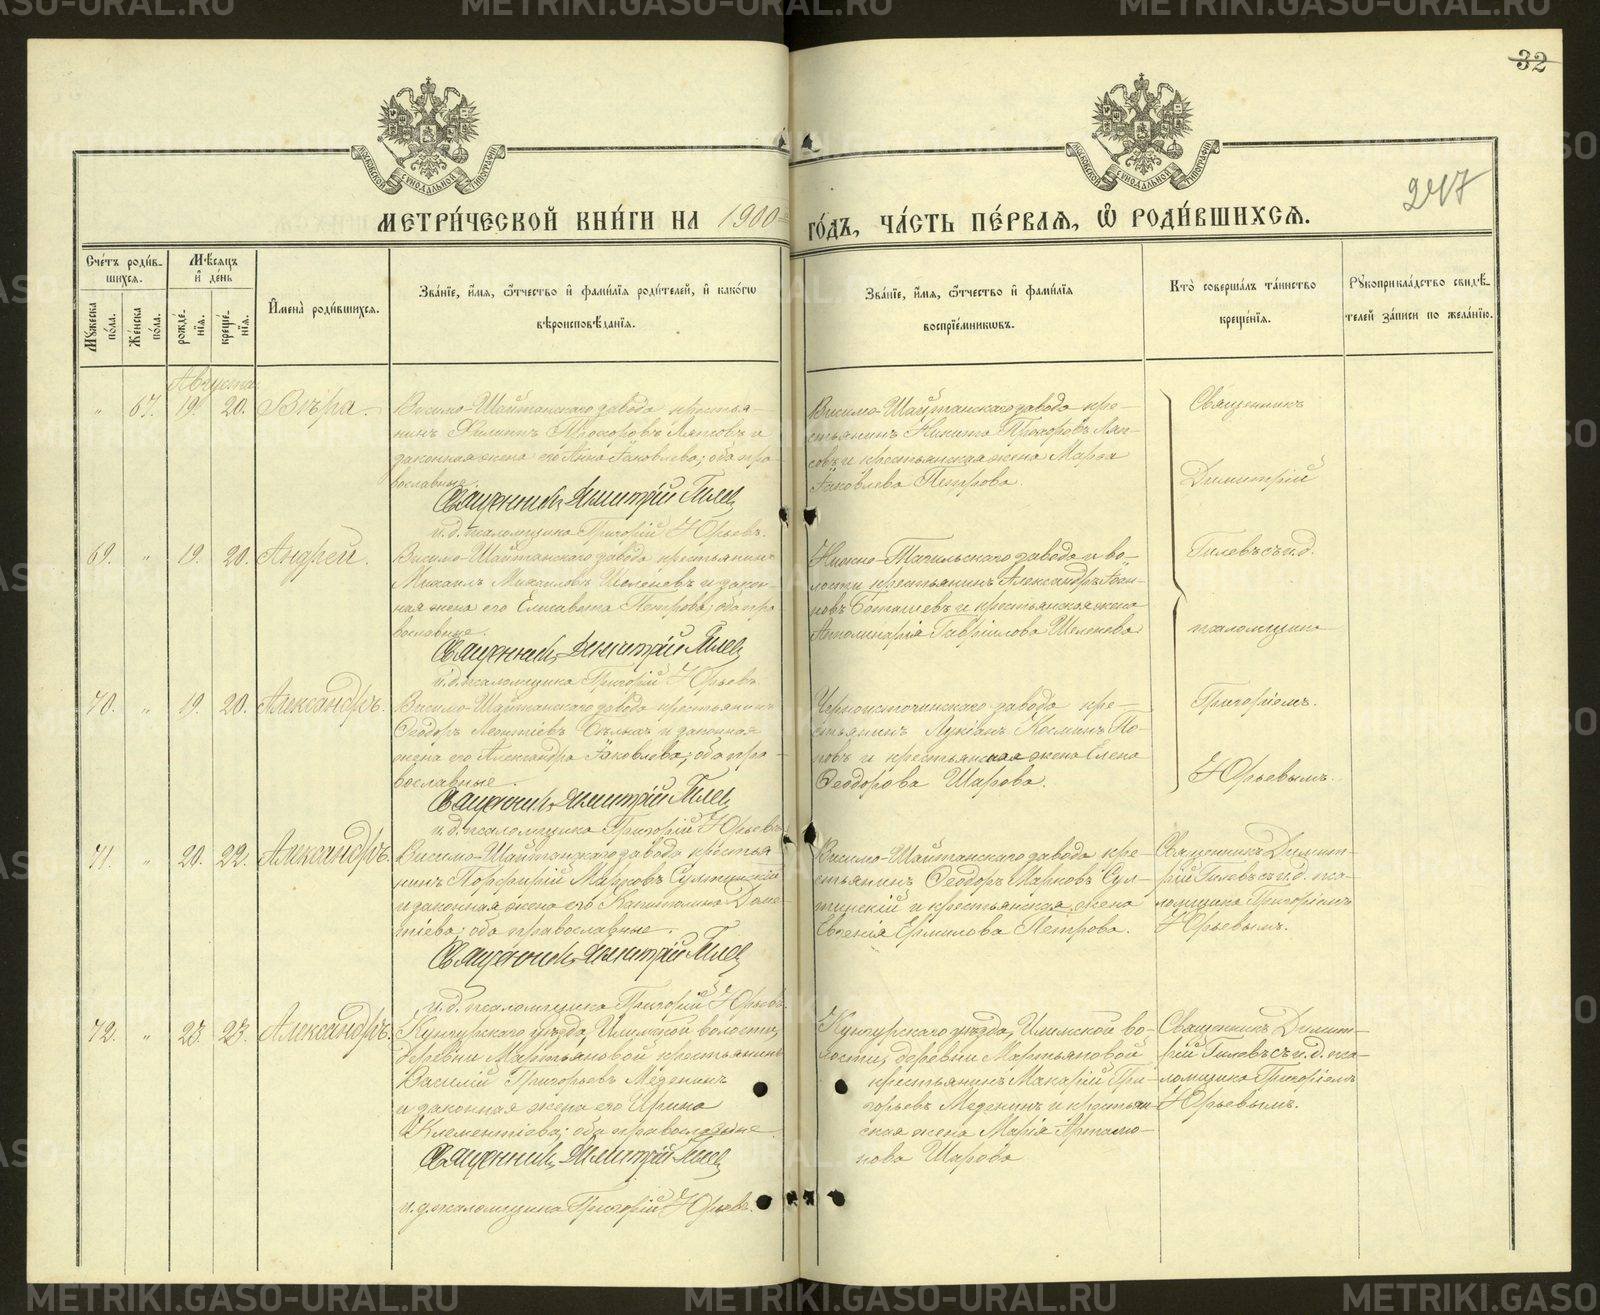 32
247
МЕТРИ́ЧЕСКОЙ КНИ́ГИ НА 1900
ГО́ДЪ, ЧА́СТЬ ПЕ́РВАЯ, Ѽ РОДИ́ВШИХСЯ.
Сче́тъ роди́в-
шихся.
Мꙋжеска по́ла.
Же́нска по́ла.
Мѣсяцъ и де́нь
рожде́-нїя.
креще́-нїя.
Имена̀ роди́вшихся.
Зва́нїе, и́мя, ѻ́тчество и фами́лїя роди́телей, и како́гѡ
вѣроисповѣ́данїя.
Зва́нїе, и́мя, ѻ́тчество и фами́лїя
воспрїе́мникѡвъ.
Кто̀ соверша́лъ та́инство
креще́нїя.
Рꙋкоприкла́дство свидѣ́-
телей за́писи по жела́нїю.
Августа
" 67. 19. 20. Вѣра.
Висимо-Шайтанскаго завода крестья-
нинъ Филиппъ Прохоровъ Ляпсовъ и
законная жена его Анна Iаковлева; оба пра-
вославные.
Священникъ Димитрій Гилевъ
и.д. псаломщика Григорій Юрьевъ.
Висимо-Шайтанскаго завода кре-
стьянинъ Никита Прохоровъ Ляп-
совъ и крестьянская жена Марѳа
Iаковлева Петрова.
Священникъ
Димитрій
Гилевъ съ и.д.
псаломщика
Григоріемъ
Юрьевымъ.
69. " 19. 20. Андрей.
Висимо-Шайтанскаго завода крестьянинъ
Михаилъ Михаиловъ Шеленевъ и закон-
ная жена его Елисавета Петрова; оба пра-
вославные.
Священникъ Димитрій Гилевъ
и.д. псаломщика Григорій Юрьевъ.
Нижне-Тагильскаго завода и во-
лости, крестьянинъ Александръ
и крестьянская жена
Аполинарія Гавріилова Шеленева.
70. " 19. 20. Александръ.
Висимо-Шайтанскаго завода крестьянинъ
Ѳеодоръ Леонтіевъ Бѣлыхъ и законная
жена его Александра Iаковлева; оба пра-
вославные.
Священникъ Димитрій Гилевъ
и.д. псаломщика Григорій Юрьевъ
Черноисточинскаго завода кре-
стьянинъ Лукіанъ Космин По-
повъ и крестьянская жена Елена
Ѳеодорова Шарова.
71. " 20. 22. Александръ.
Висимо-Шайтанскаго завода крестья
нинъ Порфирій Марковъ Султинскій
и законная жена его Капитолина Доме-
тіева; оба православные.
Священникъ Димитрій Гилевъ
и.д. псаломщика Григорій Юрьевъ
Висимо-Шайтанскаго завода кре-
стьянинъ Ѳеодоръ Марковъ Сул-
тинскій и крестьянская жена
Евгенія Ермилова Петрова.
Священникъ Димит-
рій Гилевъ съ и.д. пса-
ломщика Григоріемъ
Юрьевымъ.
72. " 23. 23. Александръ.
Кунгурскаго уѣзда, Илимской волости,
деревни Мартьяновой крестьянинъ
Василій Григорьевъ Меденинъ
и законная жена его Ирина
Климентіева; оба православные.
Священникъ Димитрій Гилевъ
и.д. псаломщика Григорій Юрьевъ.
Кунгурскаго уѣзда, Илимской во-
лости, деревни Мартьяновой
крестьянинъ Макарій Гри-
горьевъ Меденинъ и крестьян-
ская жена Марія Артамо-
нова Шарова.
Священникъ Димит-
рій Гилевъ съ и.д. пса-
ломщика Григоріемъ
Юрьевымъ.
METRIKI.GASO-URAL.RU